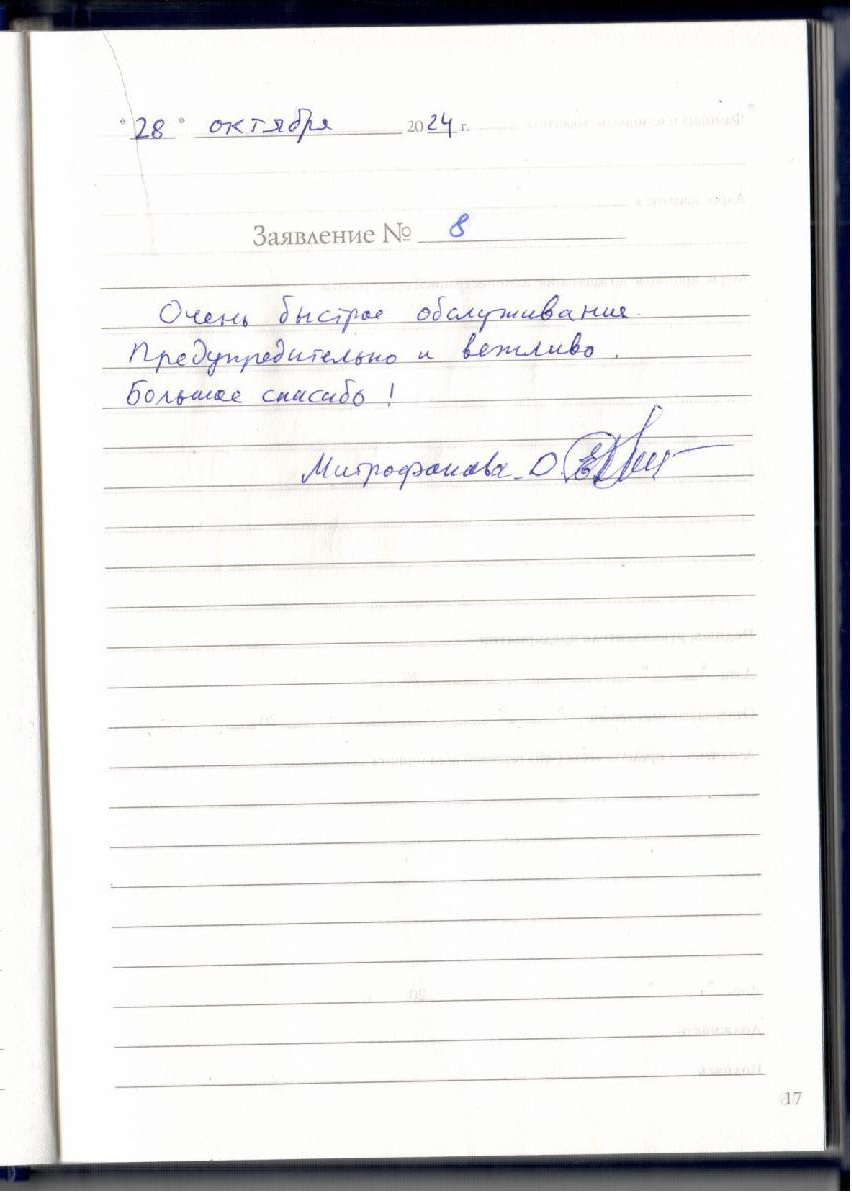 "28" октября 2024 г.
Заявление № 8
Очень быстрое обслуживание.
Предупредительно и вежливо.
Большое спасибо!
Митрофанова О
17